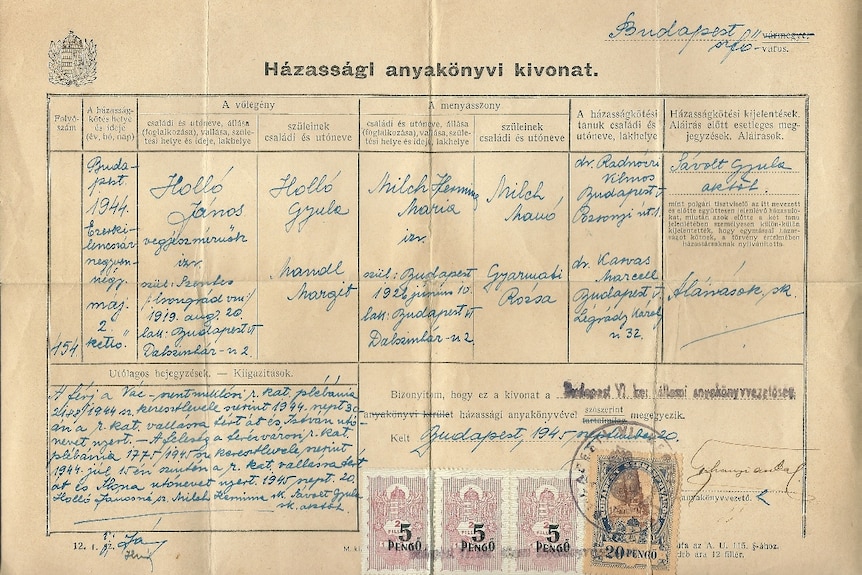 Budapest VI vármegye.
szfő-város.
Házassági anyakönyvi kivonat.
Folyó-
szám
A házasság-
kötés helye
és ideje
(év, hó, nap)
A vőlegény
családi és utóneve, állása
(foglalkozása), vallása, szüle-
tési helye és ideje, lakhelye
szüleinek
családi és utóneve
A menyasszony
családi és utóneve, állása
(foglalkozása), vallása, szüle-
tési helye és ideje, lakhelye
szüleinek
családi és utóneve
A házasságkötési
tanuk családi és
utóneve, lakhelye
Házasságkötési kijelentések.
Aláírás előtt esetleges meg-
jegyzések. Aláírások.
154
Buda-
pest.
1944.
Ezerki-
lencszáz
negyven-
négy.
maj.
2.
kettő.
Holló
János
vegyészmérnök
izr.
szül: Szentes
1919. aug. 20.
lak: Budapest VI
Dalszinház-u 2
Holló
Gyula
Mandl
Margit
Milch Hemima
Mária
izr.
szül: Budapest
június 10.
lak: Budapest VI
Dalszinház-u 2.
Milch
Manó
Gyarmati
Rózsa
dr. Radnóczi
Vilmos
Budapest V
Pozsonyi út 1.
dr. Karvas
Marcell
Budapest V.
Légrády Károly
u 32.
Sávolt Gyula
aktóh.
mint polgári tisztviselő az itt nevezett
és előtte együttesen jelenlévő házasulók-
kat, miután azok előtte a két tanu
jelenlétében személyesen külön-külön
kijelentették, hogy egymással háza-
ságot kötnek, a törvény értelmében
házastársaknak nyilvánította.
Aláírások, sk.
Utólagos bejegyzések. — Kiigazítások.
A férj a Vác- r. kat. plébánia
1944 sz. keresztlevele szerint 1944. szept. 30-
án a r. kat. vallásra tért át és István utó-
nevet nyert. A feleség a r. kat.
plébánia 1775/1945 sz. keresztlevele szerint
1944. júl. 15-én szintén a r. kat. vallásra tért
át és Ilona utónevet nyert. 1945. szept. 20.
Holló Jánosné sz. Milch Hemima sk. Sávolt Gyula
sk. aktóh
Bizonyítom, hogy ez a kivonat a Budapest VI. ker. állami anyakönyvvezetőség
anyakönyvi kerület házassági anyakönyvével szószerint megegyezik.
tartalmilag
Kelt Budapest, 1945 szeptember 20.
anyakönyvvezető.
5
PENGŐ
5
PENGŐ
5
PENGŐ
20 PENGŐ